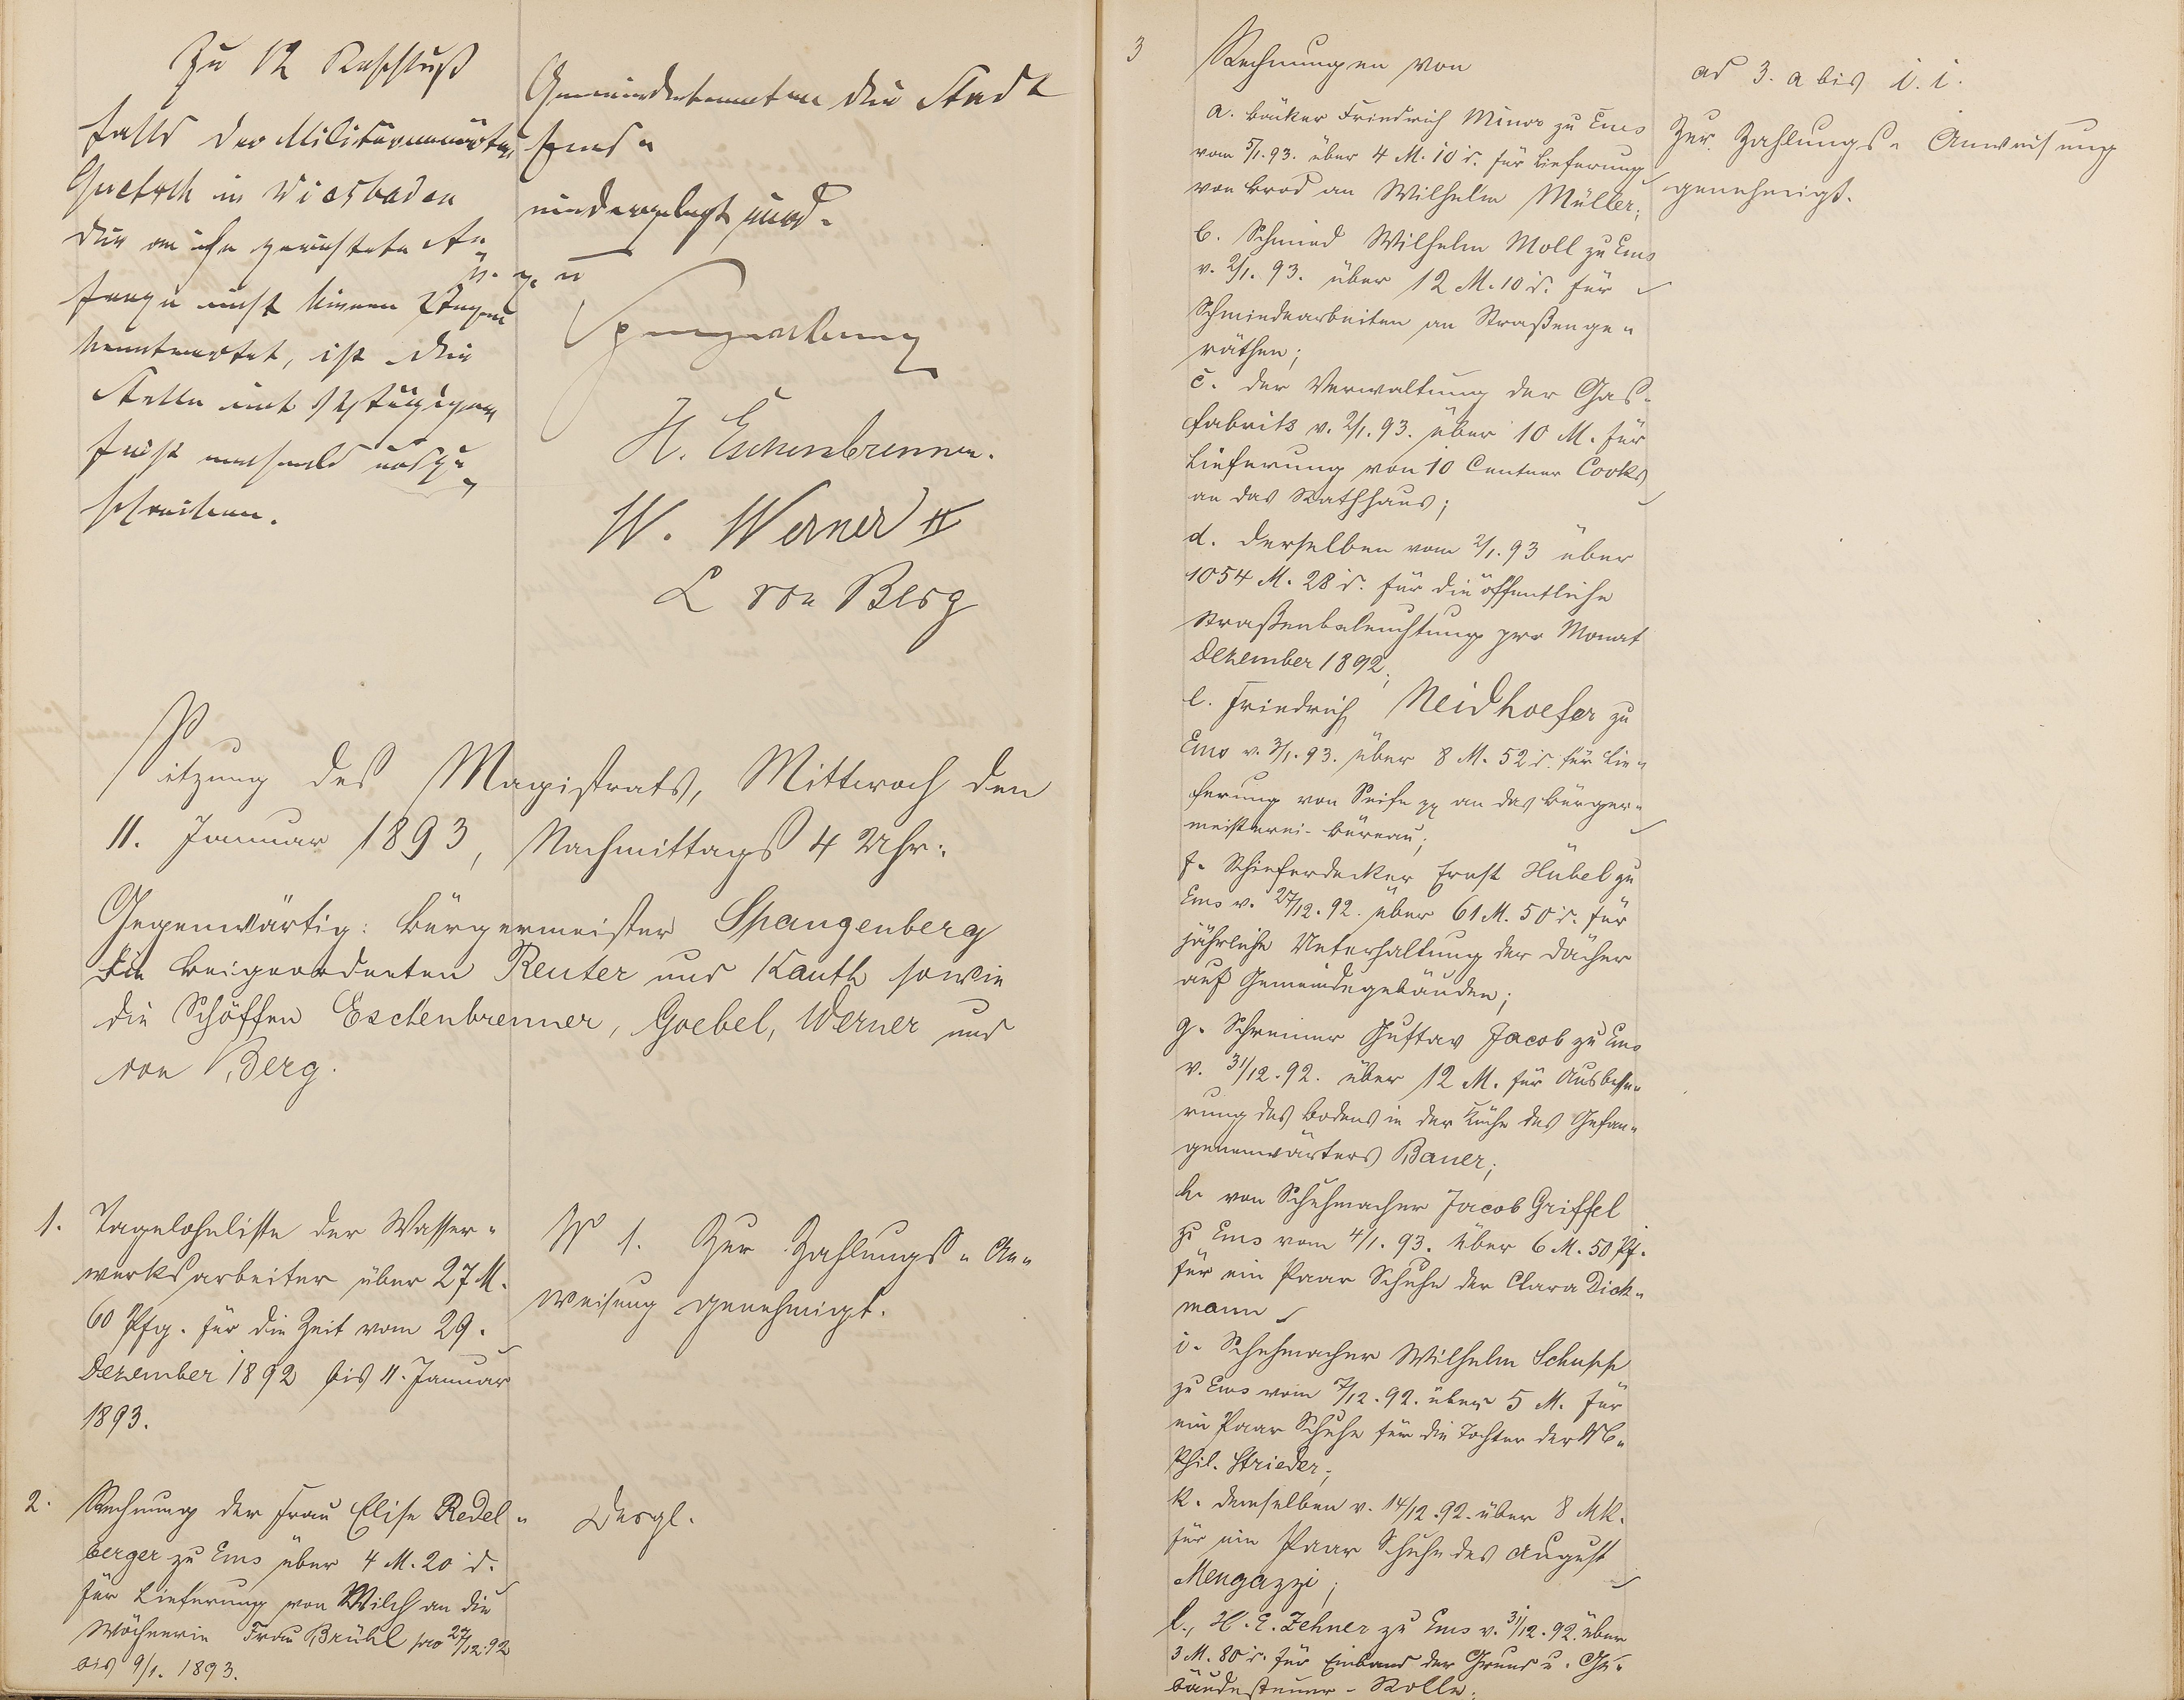 Zu 12 Beschluß
falls der Militäranwärter
in Wiesbaden
die an ihn gerichtete An-
frage nicht binnen 2 Tagen
beantwortet, ist die
Stelle mit
Frist nochmals auszu-
schreiben.
Gemeindebeamten der Stadt
Ems
niedergelegt sind.
v. g. u.
Spangenberg
H. Eschenbrenner.
W. Werner II
L von Berg
Sitzung des Magistrats, Mittwoch den
11. Januar 1893, Nachmittags 4 Uhr.
Gegenwärtig: Bürgermeister Spangenberg
die Beigeordneten Reuter und Kauth sowie
die Schöffen Eschenbrenner, Goebel, Werner und
von Berg.
1. Tagelohnliste der Wasser-
werksarbeiter über 27 M.
60 Pfg. für die Zeit vom 29.
Dezember 1892 bis 11. Januar
1893.
Zu 1. Zur Zahlungs-An-
weisung genehmigt.
2. Rechnung der Frau Elise Redel-
berger zu Ems über 4 M. 20 d.
für Lieferung von Milch an die
Wöchnerin Frau Brühl pro 27/12.92
bis 9/1. 1893.
Desgl.
3 Rechnungen von
a. Bäcker Friedrich Minor zu Ems
vom 5/1.93. über 4 M. 10 d. für Lieferung
von Brod an Wilhelm Müller;
b. Schmied Wilhelm Moll zu Ems
v. 2/1. 93. über 12 M. 10 d. für
Schmiedearbeiten an Straßenge-
räthen;
c. der Verwaltung der Gas-
fabrik v. 2/1. 93. über 10 M. für
Lieferung von 10 Centner Cooks
an das Rathhaus;
d. derselben vom 2/1. 93 über
1054 M. 28 d. für die öffentliche
Straßenbeleuchtung pro Monat
Dezember 1892;
e. Friedrich Neidhoefer zu
Ems v. 3/1. 93. über 8 M. 52 d. für Lie-
ferung von Seife pp an das Bürger-
meisterei-Büreau;
f. Schieferdecker Ernst Hübel zu
Ems v. 27/12.92. über 61 M. 50 d. für
jährliche Unterhaltung der Dächer
auf Gemeindegebäuden;
g. Schreiner Gustav Jacob zu Ems
v. 31/12.92. über 12 M. für Ausbesse-
rung des Bodens in der Küche des Gefan-
genenwärters Bauer;
h. von Schuhmacher Jacob Griffel
zu Ems vom 4/1. 93. über 6 M. 50 Pf.
für ein Paar Schuhe der Clara Dick-
mann
i. Schuhmacher Wilhelm Schupp
zu Ems vom 7/12.92. über 5 M. für
ein Paar Schuhe für die Tochter der
Phil. Strieder;
k. demselben v. 14/12.92. über 8 Mk.
für ein Paar Schuhe des August
Mengazzi;
l., H. E. Zehner zu Ems v. 31/12.92. über
3 M. 80 d. für Einband der Grund u. Ge-
bäudesteuer-Rolle;
ad 3. a bis i. i.
Zur Zahlungs-Anweisung
genehmigt.